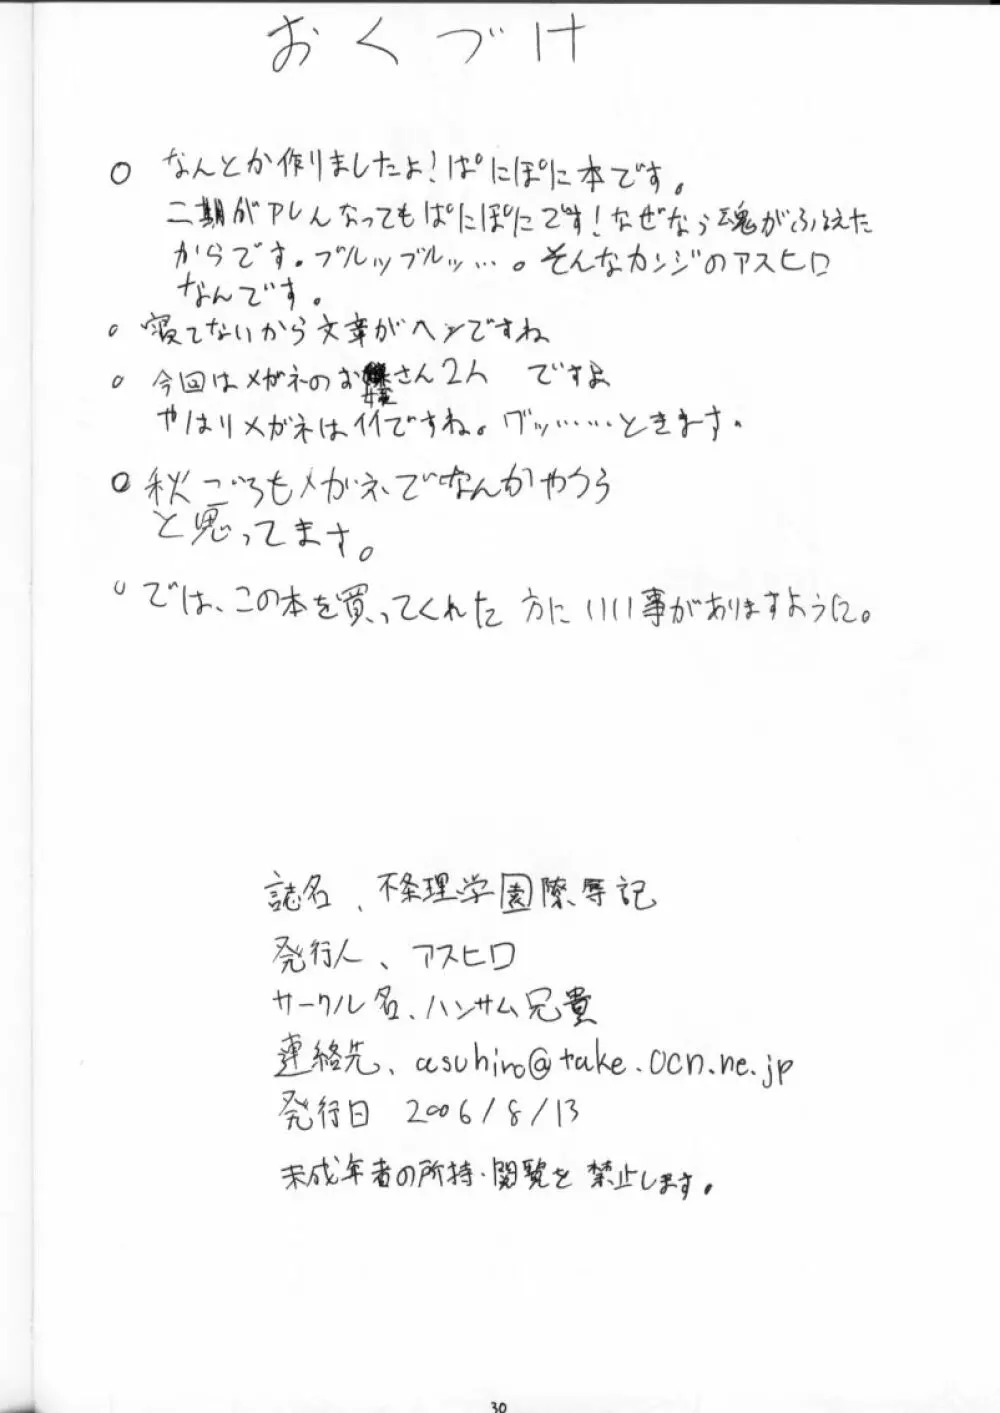 おくづけ
○ なんとか作りましたよ!ぱにぽに本です。
二期がアレんなってもぱにぽにです!なぜなら魂がふるえた
からです。ブルッブルッ…。そんなカンジのアスヒロ
なんです。
○ 寝てないから文章がヘンですね
○ 今回はメガネのお嬢さん2人 ですよ
やはりメガネはイイですね。グッ……ときます。
○ 秋ごろもメガネでなんかやろう
と思ってます。
○ では、この本を買ってくれた方にいい事がありますように。
誌名、不条理学園陵辱記
発行人、アスヒロ
サークル名、ハンサム兄貴
連絡先、asuhiro@take.ocn.ne.jp
発行日 2006/8/13
未成年者の所持・閲覧を禁止します。
30